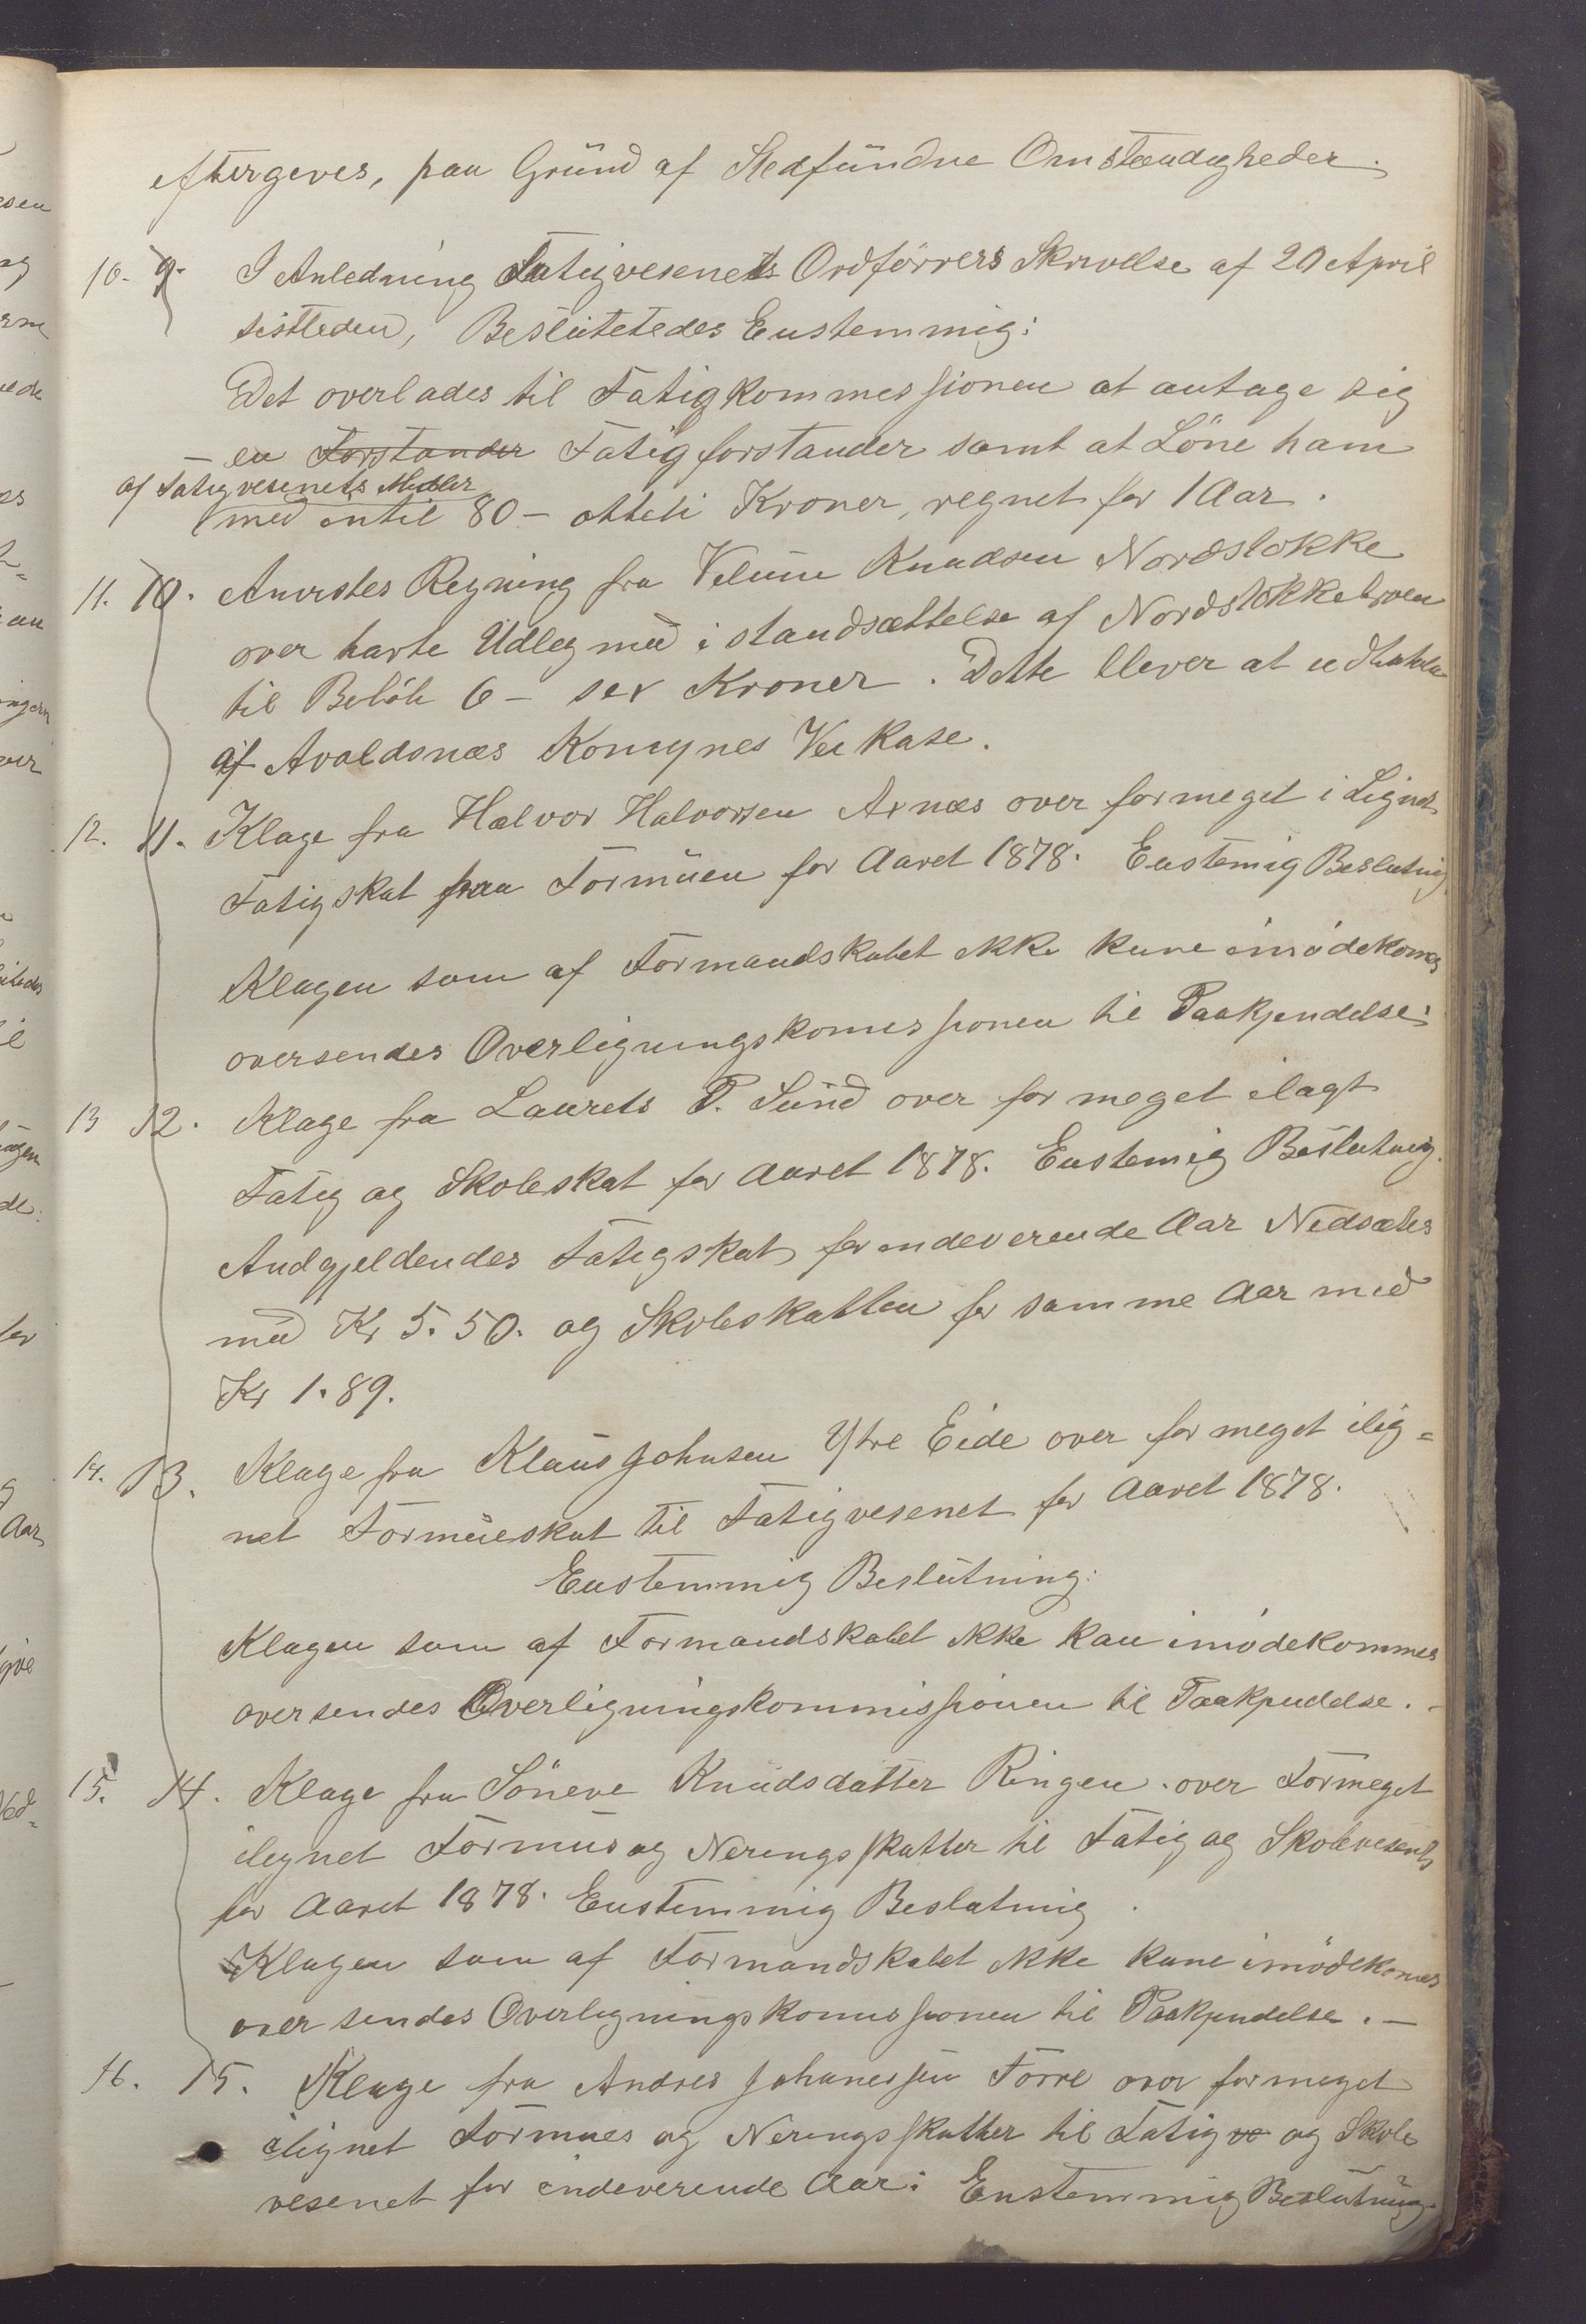 eftergives, paa Grund af Stedfundne Omstændigheder.
10. 9. I Anledning Fatigvesenets Ordförrers Skrivelse af 20 April
sistleden, Beslutetedes Enstemmig:
Det overlades til Fatigkommessionen at antage sig
en Forstander Fatigforstander samt at Löne ham
af Fatigvesenets Midler
med intil 80 - otteti Kroner, regnet for 1 Aar.
11. 10. Anvistes Regning fra Velum Knudsen Nordstokke
over havte Udleg med istandsættelse af Nordstokkebroen
til Belöb 6 - sex Kroner. Dette blever at udbetale
af Avaldsnæs Komynes Veikase.
12. 11. Klage fra Halvor Halvorsen Axnæs over formeget i Lignet
Fatigskat paa Formuen for Aaret 1878. Enstemig Beslutnig
Klagen som af Formandskabet ikke kune imödekomes
oversendes Overligningskomissionen til Paakjendelse:
13 12. Klage fra Laurets P. Sund over for meget ilagt
Fatig og Skoleskat for Aaret 1878. Enstemig Beslutnig.
Andgjeldendes Fatigskat for indeverende Aar Nedsættes
med Kr 5.50. og Skoleskatten for samme Aar med
Kr 1.89.
14. 13. Klage fra Klaus Johnsen Ytre Eide over for meget ilig=
net Formueskat til Fatigvesenet for Aaret 1878.
Enstemmig Beslutning:
Klagen som af Formandskabet ikke kan imödekommes
oversendes Overligningskommissionen til Paakjendelse. -
15. 14. Klage fra Söneve Knudsdatter Ringen over Formeget
ilegnet Formus og Nerings skatter til Fatig og Skolevesenets
for Aaret 1878. Enstemmig Beslutnig.
Klagen som af Formandskabet ikke kune imödekomes
oversendes Overlignings komissionen til Paakjendelse. -
16. 15. Klage fra Andres Johanessen Förre over formeget
ilignet Formues og Nerings skatter til Fatig ve og Skole
vesenet for indeverende Aar: Enstemmig Beslutning.